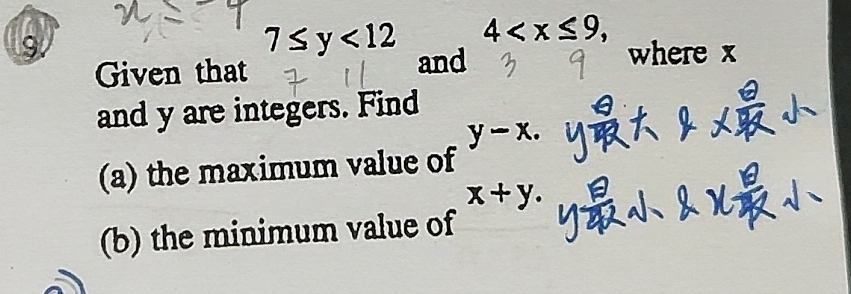 9.
7 ≤ y < 12    4 < x ≤ 9,
Given that    and    where x
7  11    3  9
and y are integers. Find
y − x. y最大 & x最小
(a) the maximum value of
x + y. y最小 & x最小
(b) the minimum value of